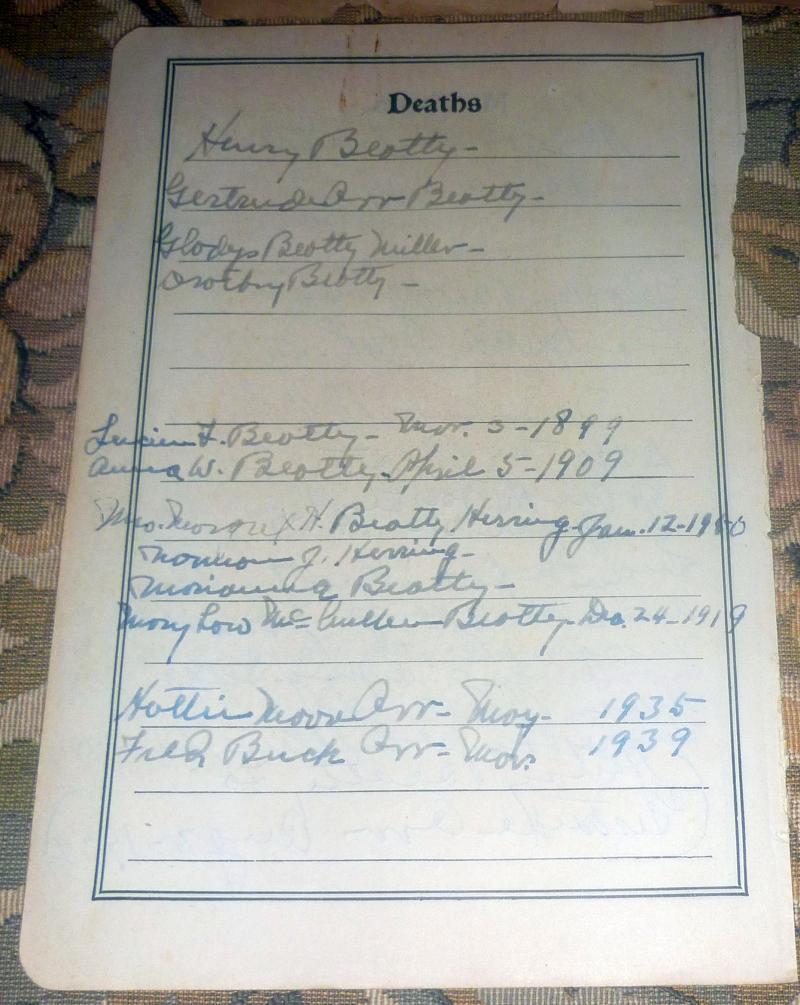 Deaths
Henry Beatty -
Gertrude Orr Beatty -
Gladys Beatty Miller -
Dorothy Beatty -
Lucien F. Beatty - Mar. 3 - 1899
Anna W. Beatty - April 5 - 1909
Mrs. H. Beatty Herring - Jan. 12 -
Norman J. Herring -
Marianna Beatty -
Mary Low McCullen Beatty - Dec. 24 - 1919
Hattie Moore Orr - May - 1935
Fred Buck Orr - Mar. 1939